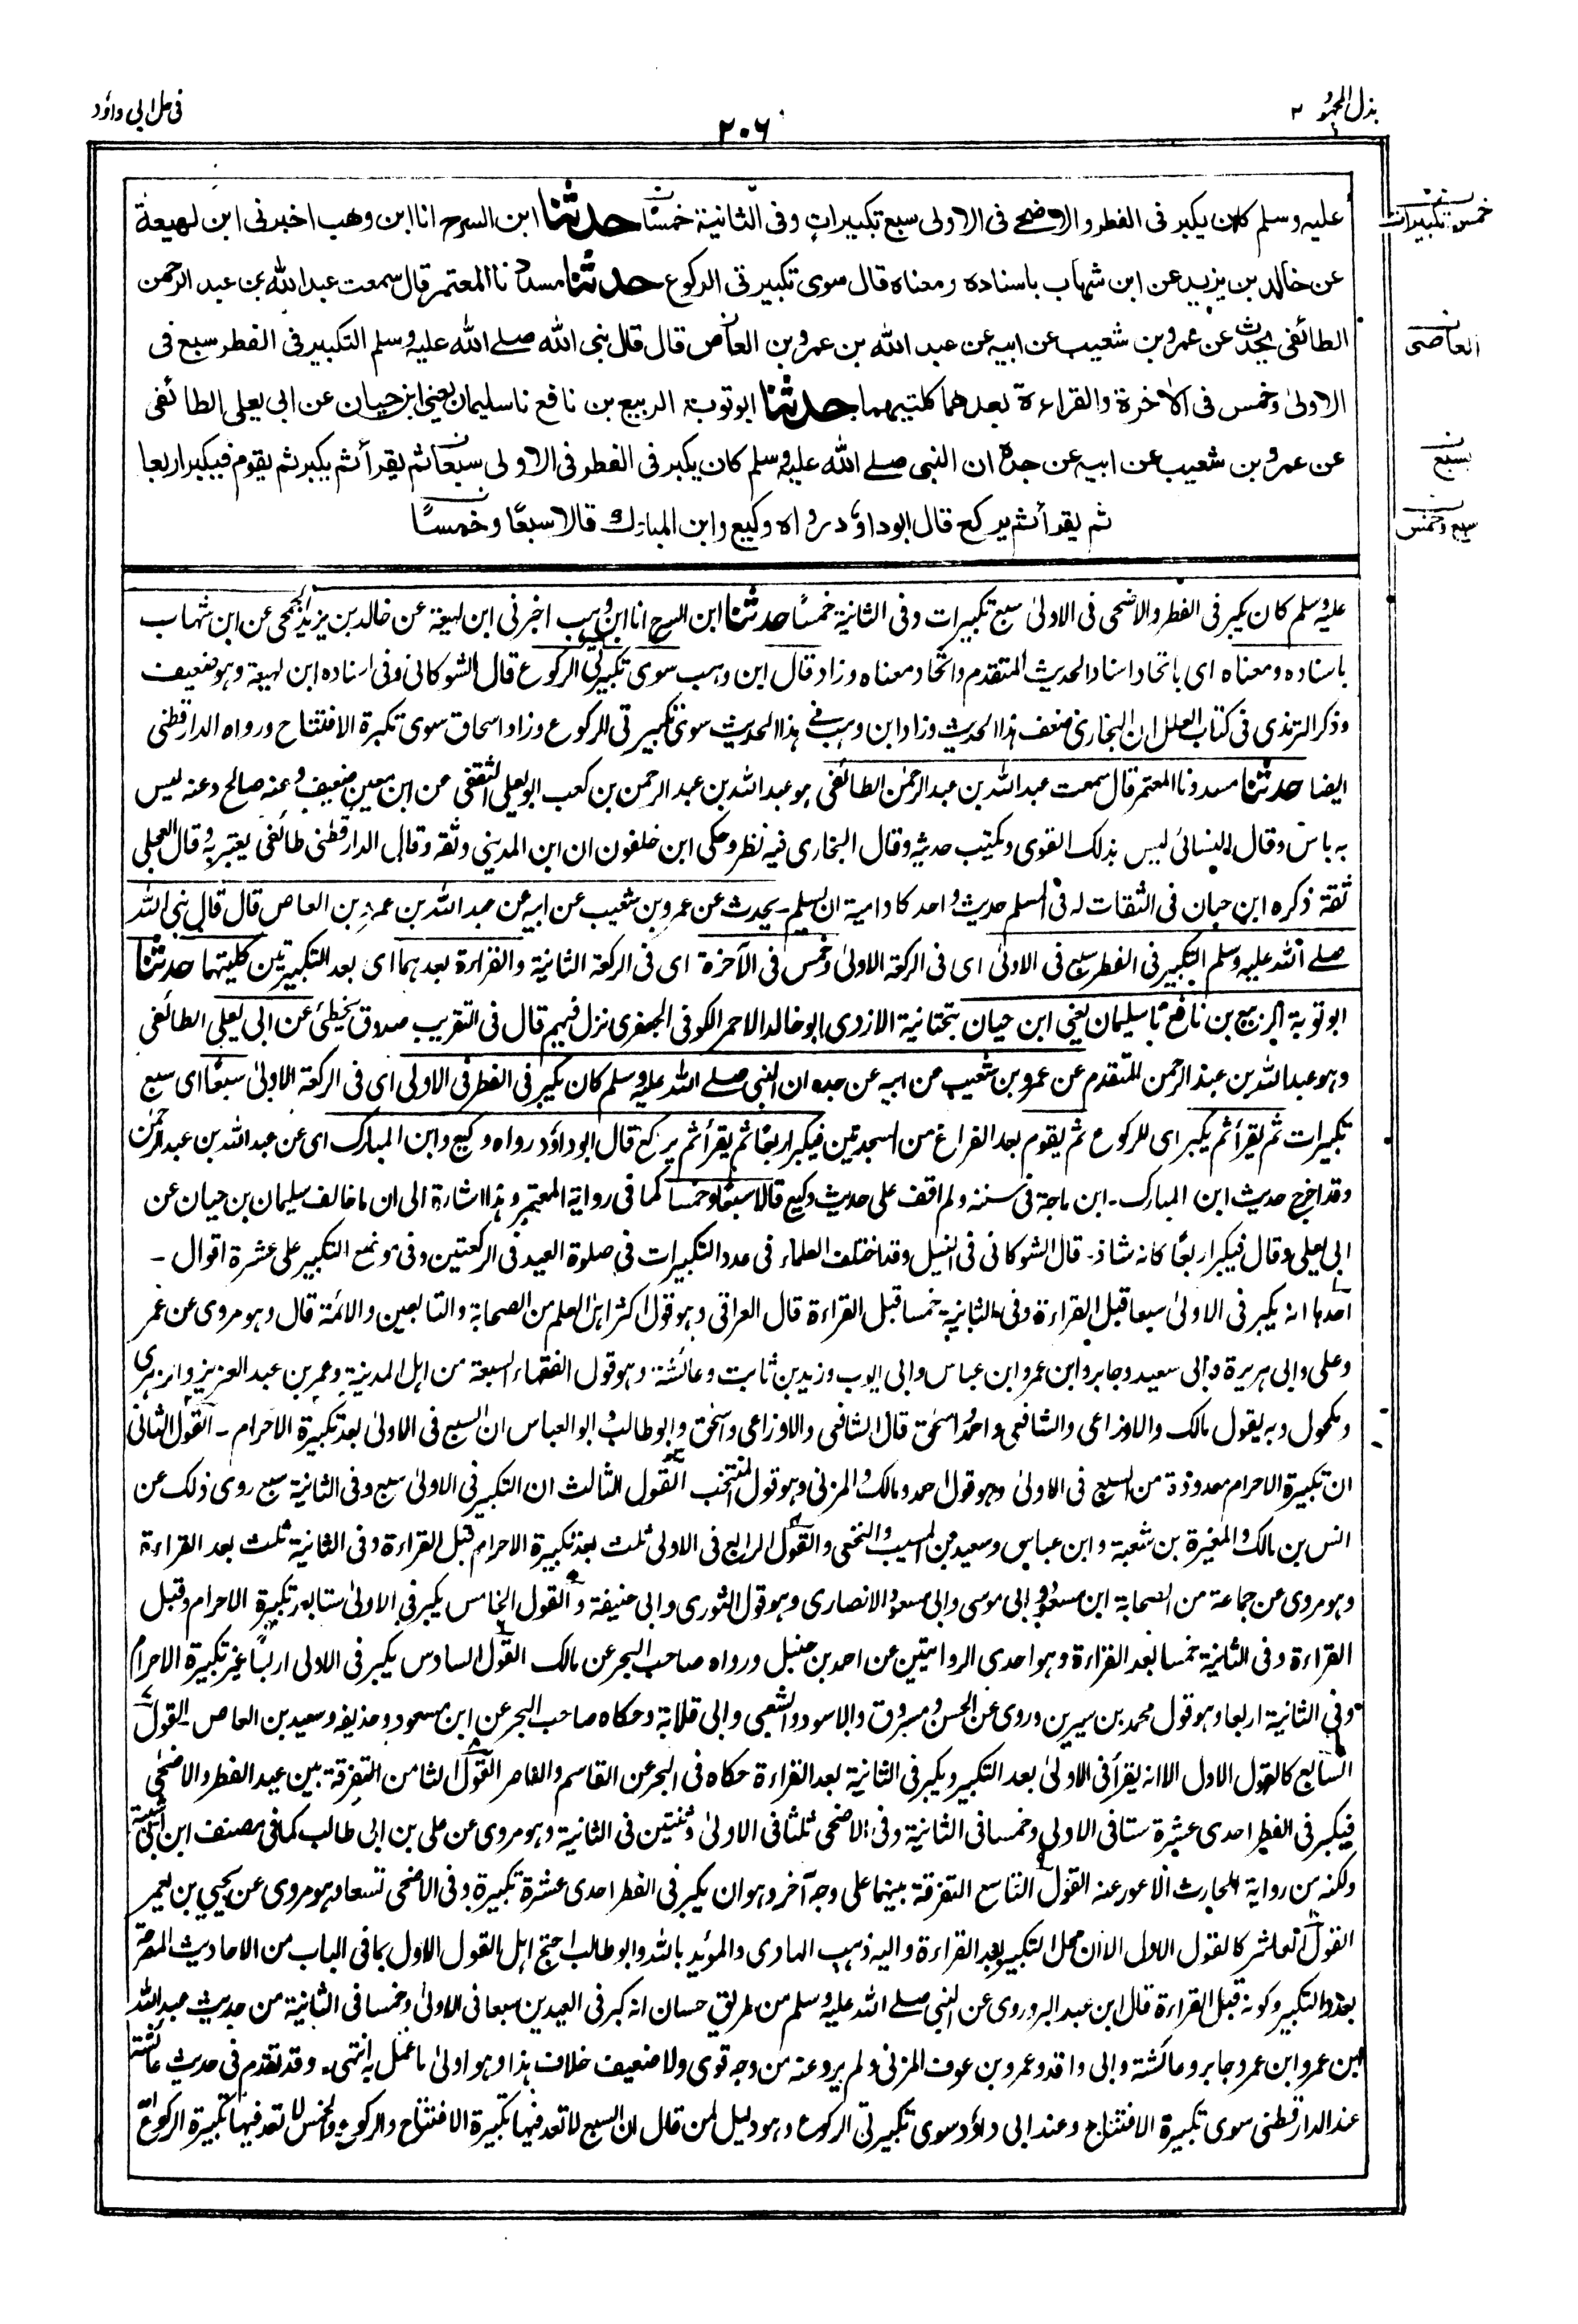 بذل المجهود ٢
٢٠٦
فى حل ابى داؤد
عليه وسلم كان يكبر فى الفطر والاضحے فى الاولى سبع تكبيرات وفى الثانية خمسًا حدثنا ابن السرح انا ابن وهب اخبرنى ابن لهيعة
خمس تكبيرات
عن خالد بن يزيد عن ابن شهاب باسناده ومعناه قال سوى تكبيرتى الركوع حدثنا مسدد نا المعتمر قال سمعت عبد الله بن عبد الرحمن
الطائفى يحدث عن عمرو بن شعيب عن ابيه عن عبد الله بن عمرو بن العاص قال قال نبى الله صلے الله عليه وسلم التكبير فى الفطر سبع فى
العاصى
الاولىٰ وخمس فى الاٰخرة والقراءة بعدهما كلتيهما حدثنا ابو توبة الربيع بن نافع نا سليمان يعنى ابن حيان عن ابى يعلى الطائفى
عن عمرو بن شعيب عن ابيه عن جده ان النبى صلے الله عليه وسلم كان يكبر فى الفطر فى الاولى سبعًا ثم يقرأ ثم يكبر ثم يقوم فيكبر اربعا
بسبع
ثم يقرأ ثم يركع قال ابو داؤد رواه وكيع وابن المبارك قالا سبعًا وخمسًا
سبع وخمس
عليه وسلم كان يكبر فى الفطر والاضحى فى الاولىٰ سبع تكبيرات وفى الثانية خمسًا حدثنا ابن السرح انا ابن وهب اخبرنى ابن لهيعة عن خالد بن يزيد الجمحى عن ابن شهاب
باسناده ومعناه اى باتحاد اسناد الحديث المتقدم واتحاد معناه وزاد قال ابن وهب سوى تكبيرتى الركوع قال الشوكانى وفى اسناده ابن لهيعة وهو ضعيف
وذكر الترمذى فى كتاب العلل ان البخارى ضعف هذا الحديث وزاد ابن وهب فے هذا الحديث سوى تكبيرتى الركوع وزاد اسحاق سوى تكبرة الافتتاح ورواه الدارقطنى
ايضا حدثنا مسدد نا المعتمر قال سمعت عبد الله بن عبد الرحمٰن الطائفى هو عبد الله بن عبد الرحمن بن كعب ابو يعلى الثقفى عن ابن معين ضعيف وعنه صالح وعنه ليس
به باس وقال النسائى ليس بذلك القوى ويكتب حديثه وقال البخارى فيه نظر وحكى ابن خلفون ان ابن المدينى وثقه وقال الدارقطنى طائفى يعتبر به وقال العجلى
ثقة ذكره ابن حبان فى الثقات له فى المسلم حديث واحد كاد امية ان يسلم - يحدث عن عمرو بن شعيب عن ابيه عن عبد الله بن عمرو بن العاص قال قال نبى الله
صلے الله عليه وسلم التكبير فى الفطر سبع فى الاولىٰ اى فى الركعة الاولىٰ وخمس فى الآخرة اى فى الركعة الثانية والقراءة بعدهما اى بعد التكبيرتين كليتهما حدثنا
ابو توبة الربيع بن نافع نا سليمان يعنى ابن حيان بتحتانية الازدى ابو خالد الاحمر الكوفى الجعفرى نزل فيهم قال فى التقريب صدوق يخطئ عن ابى يعلى الطائفى
وهو عبد الله بن عبد الرحمن المتقدم عن عمرو بن شعيب عن ابيه عن جده ان النبى صلے الله عليه وسلم كان يكبر فى الفطر فى الاولى اى فى الركعة الاولىٰ سبعًا اى سبع
تكبيرات ثم يقرأ ثم يكبر اى للركوع ثم يقوم بعد الفراغ من السجدتين فيكبر اربعًا ثم يقرأ ثم يركع قال ابو داؤد رواه وكيع وابن المبارك اى عن عبد الله بن عبد الرحمٰن
وقد اخرج حديث ابن المبارك - ابن ماجة فى سننه ولم اقف على حديث وكيع قالا سبعًا وخمسا كما فى رواية المعتمر وهذا اشارة الى ان ما خالف سليمان بن حيان عن
ابى يعلى وقال فيكبر اربعًا كانه شاذ - قال الشوكانى فى النيل وقد اختلف العلماء فى عدد التكبيرات فى صلوة العيد فى الركعتين وفى موضع التكبير على عشرة اقوال -
احدها انه يكبر فى الاولىٰ سبعا قبل القراءة وفى الثانية خمسا قبل القراءة قال العراقى وهو قول اكثر اهل العلم من الصحابة والتابعين والائمة قال وهو مروى عن عمر
وعلى وابى هريرة وابى سعيد وجابر وابن عمر وابن عباس وابى ايوب وزيد بن ثابت وعائشة وهو قول الفقهاء السبعة من اهل المدينة وعمر بن عبد العزيز والزهرى
ومكحول وبه يقول مالك والاوزاعى والشافعى واحمد واسحٰق قال الشافعى والاوزاعى واسحٰق وابو طالب وابو العباس ان السبع فى الاولىٰ بعد تكبيرة الاحرام - القول الثانى
ان تكبيرة الاحرام معدودة من السبع فى الاولىٰ وهو قول احمد ومالك والمزنى وهو قول المنتخب القول الثالث ان التكبير فى الاولىٰ سبع وفى الثانية سبع روى ذلك عن
انس بن مالك والمغيرة بن شعبة وابن عباس وسعيد بن المسيب والنخعى والقول الرابع فى الاولىٰ ثلث بعد تكبيرة الاحرام قبل القراءة وفى الثانية ثلث بعد القراءة
وهو مروى عن جماعة من الصحابة ابن مسعود وابى موسى وابى مسعود الانصارى وهو قول الثورى وابى حنيفة والقول الخامس يكبر فى الاولىٰ ستا بعد تكبيرة الاحرام وقبل
القراءة وفى الثانية خمسا بعد القراءة وهو احدى الروايتين عن احمد بن حنبل ورواه صاحب البحر عن مالك القول السادس يكبر فى الاولى اربعًا غير تكبيرة الاحرام
وفى الثانية اربعا وهو قول محمد بن سيرين وروى عن الحسن ومسروق والاسود والشعبى وابى قلابة وحكاه صاحب البحر عن ابن مسعود وحذيفه وسعيد بن العاص - القول
السابع كالقول الاول الا انه يقرأ فى الاولىٰ بعد التكبير ويكبر فى الثانية بعد القراءة حكاه فى البحر عن القاسم والناصر القول الثامن التفرقة بين عيد الفطر والاضحٰى
فيكبر فى الفطر احدى عشرة ستا فى الاولى وخمسا فى الثانية وفى الاضحى ثلثا فى الاولىٰ وثنتين فى الثانية وهو مروى عن على بن ابى طالب كما فى مصنف ابن ابى شيبة
ولكنه من رواية الحارث الاعور عنه القول التاسع التفرقة بينهما على وجه آخر وهو ان يكبر فى الفطر احدى عشرة تكبيرة وفى الاضحى تسعا وهو مروى عن يحيى بن يعمر
القول العاشر كالقول الاول الا ان محل التكبير بعد القراءة واليه ذهب الهادى والمؤيد بالله وابو طالب احتج اهل القول الاول بما فى الباب من الاحاديث المصرحة
بعدد التكبير وكونه قبل القراءة قال ابن عبد البر وروى عن النبى صلے الله عليه وسلم من طريق حسان انه كبر فى العيدين سبعا فى الاولىٰ وخمسا فى الثانية من حديث عبد الله
بن عمرو وابن عمر وجابر وعائشة وابى واقد وعمرو بن عوف المزنى ولم يرو عنه من وجه قوى ولا ضعيف خلاف هذا وهو اولىٰ ما عمل به انتهى - وقد تقدم فى حديث عائشة
عند الدارقطنى سوى تكبيرة الافتتاح وعند ابى داؤد سوى تكبيرتى الركوع وهو دليل لمن قال ان السبع لا تعد فيها تكبيرة الافتتاح والركوع والخمس لا تعد فيها تكبيرة الركوع